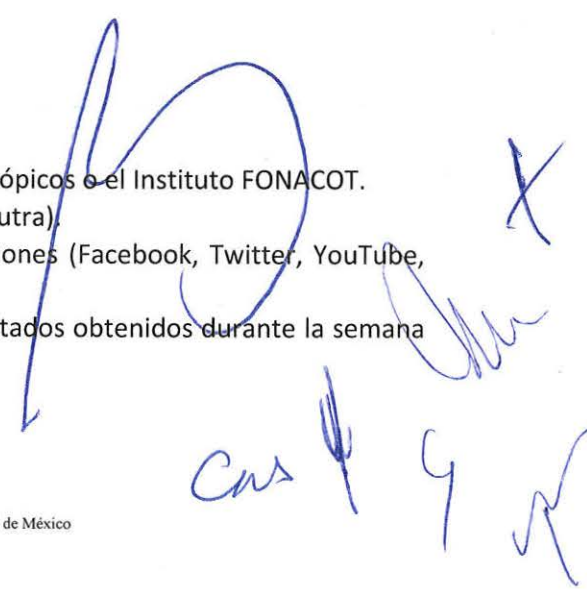 ópicos o el Instituto FONACOT.
utra).
ones (Facebook, Twitter, YouTube,
tados obtenidos durante la semana
de México